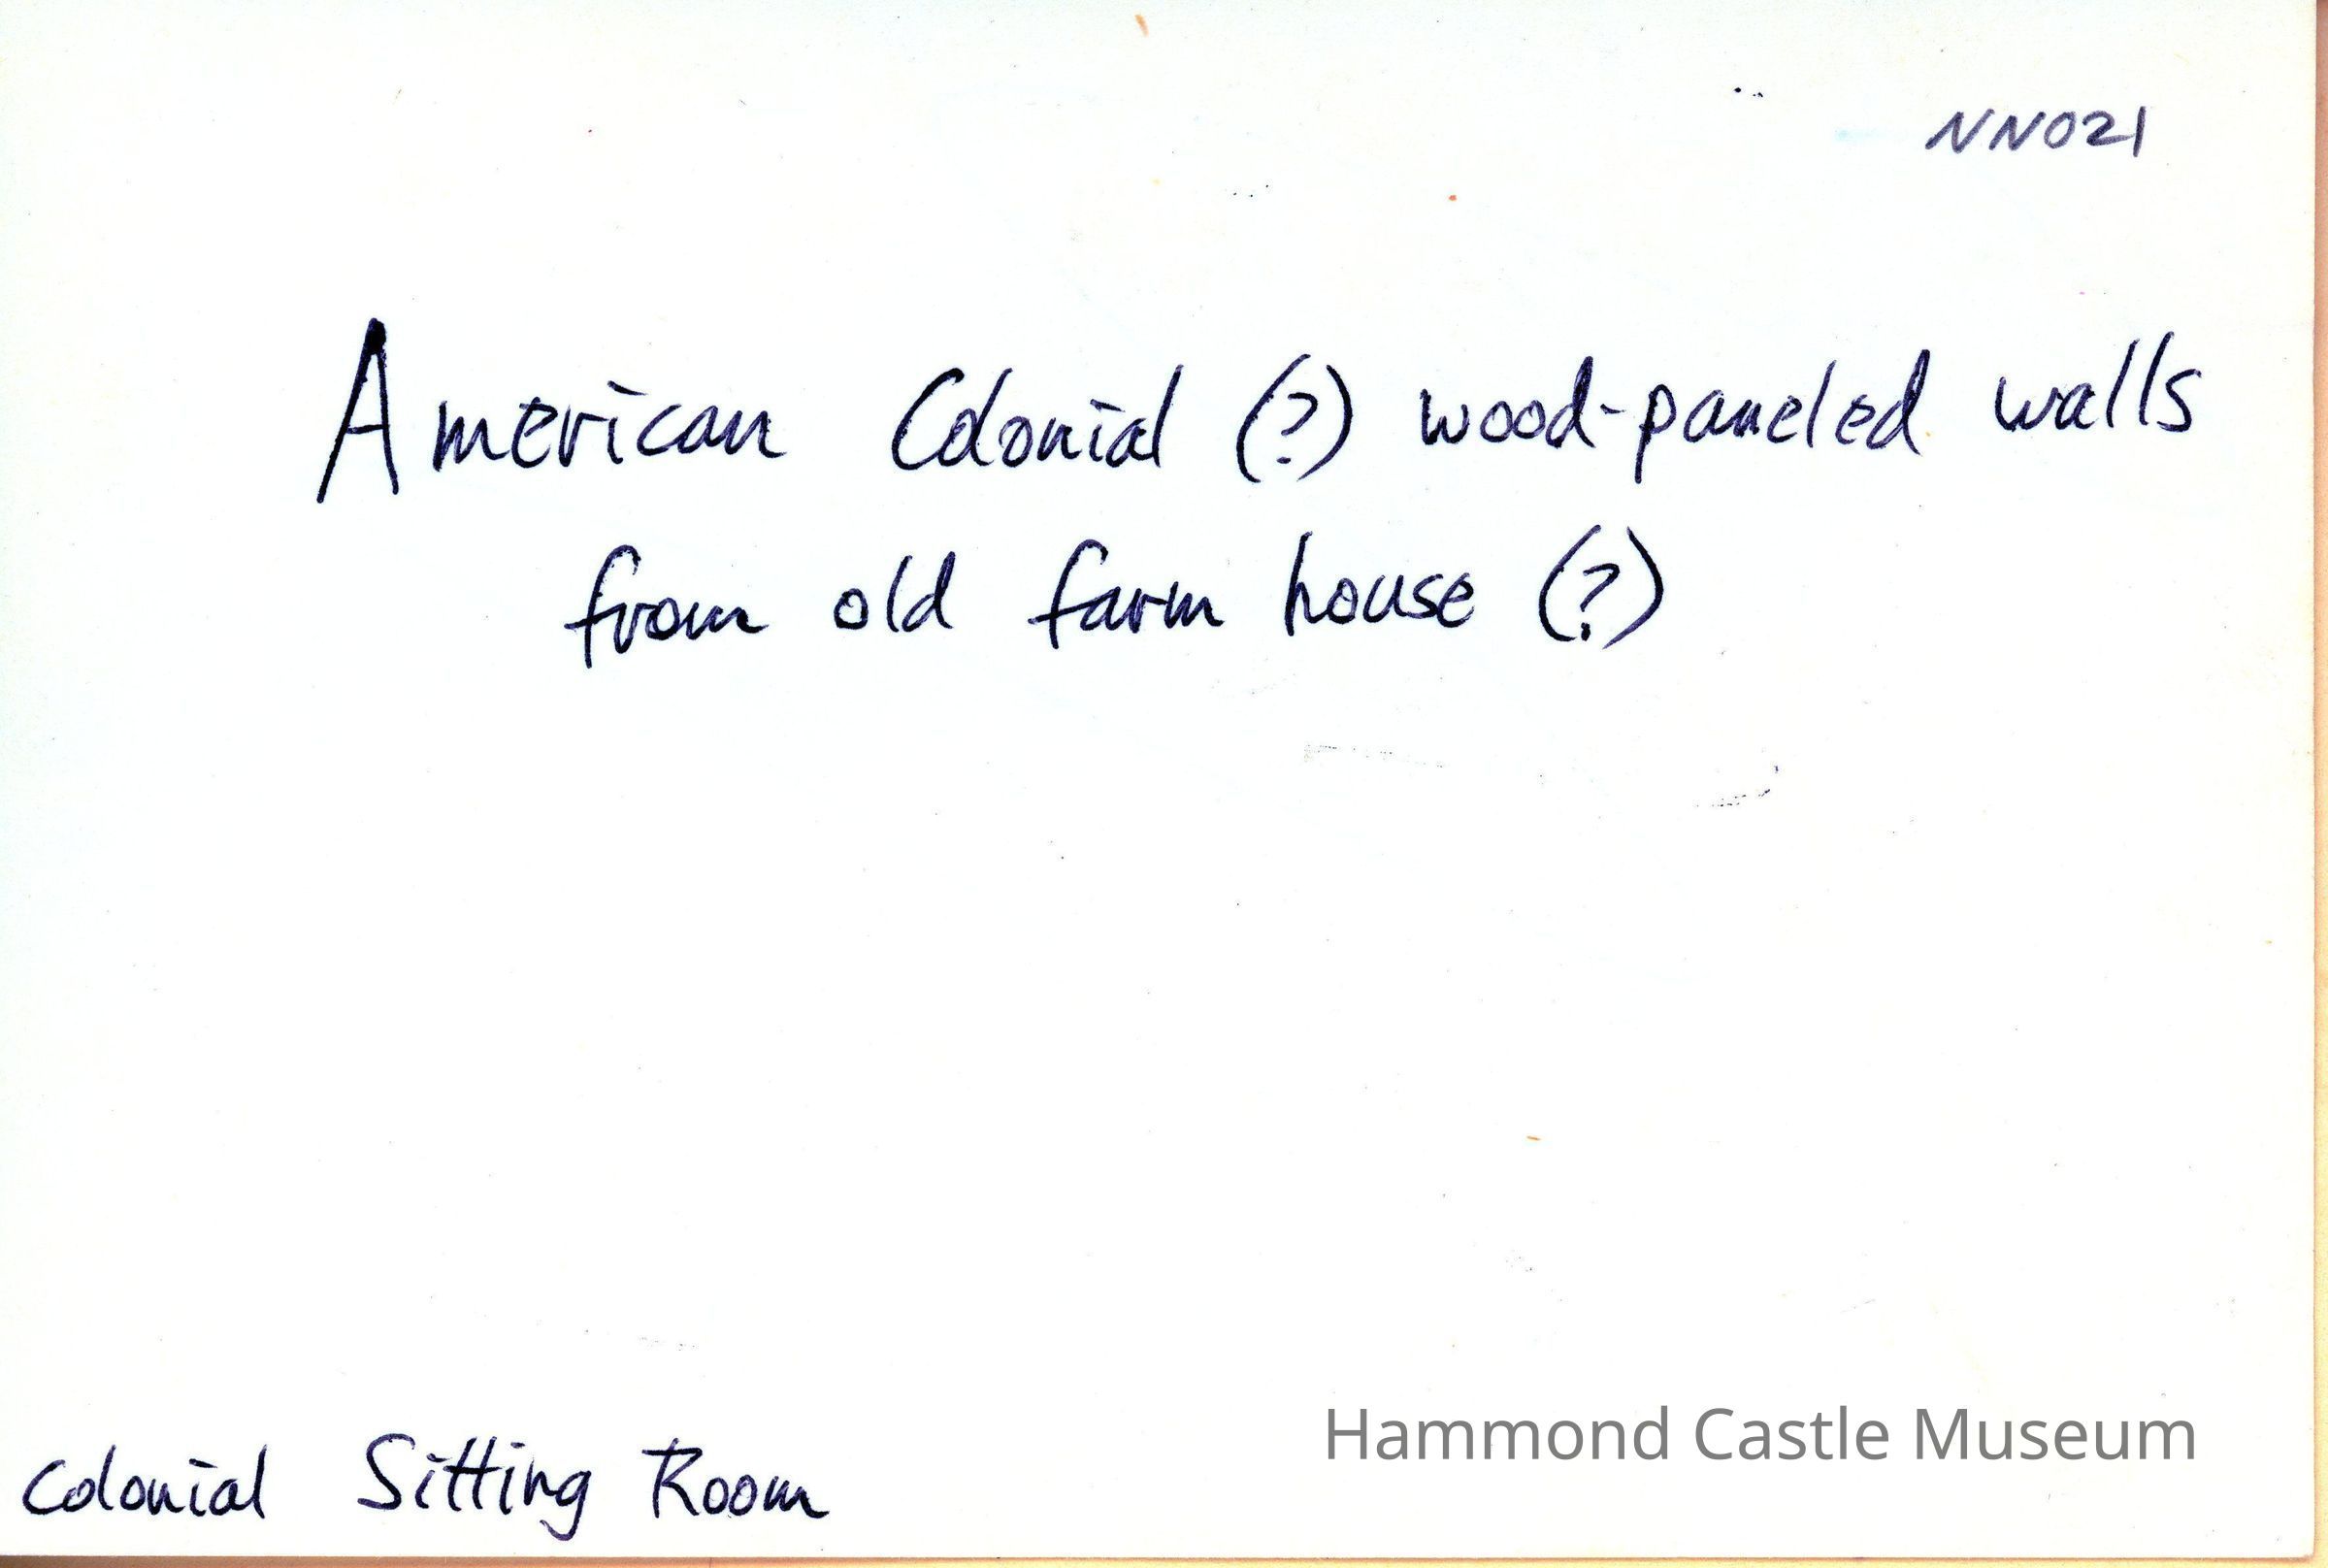 NN021
American Colonial (?) wood-paneled walls
from old farm house (?)
Hammond Castle Museum
Colonial Sitting Room